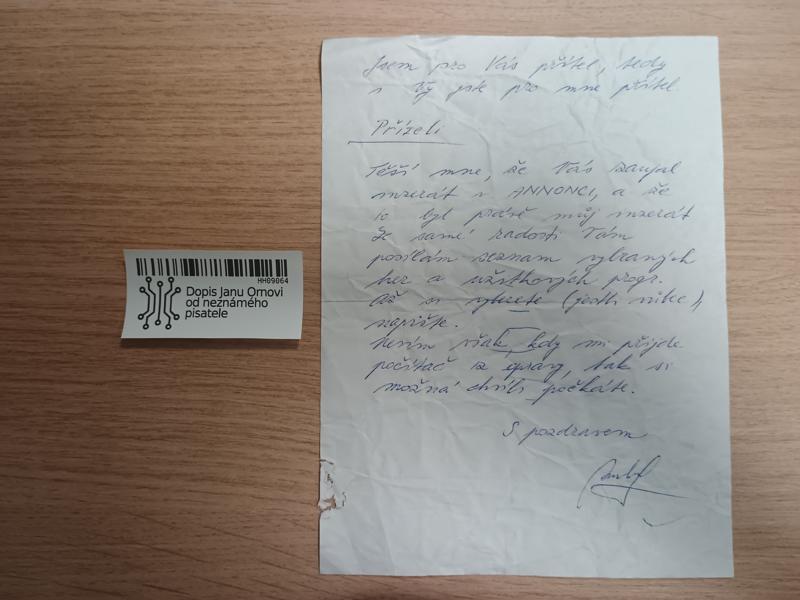 HH09064
Dopis Janu Ornovi
od neznámého
pisatele
Jsem pro Vás přítel, tedy
i Vy jste pro mne přítel.
Příteli
Těší mne, že Vás zaujal
inzerát v ANNONCI, a že
to byl právě můj inzerát
Ze samé radosti Vám
posílám seznam vybraných
her a užitkových progr.
Až si vyberete (jestli vůbec),
napište.
Nevím však, kdy mi přijde
počítač z opravy, tak si
možná chvíli počkáte.
S pozdravem